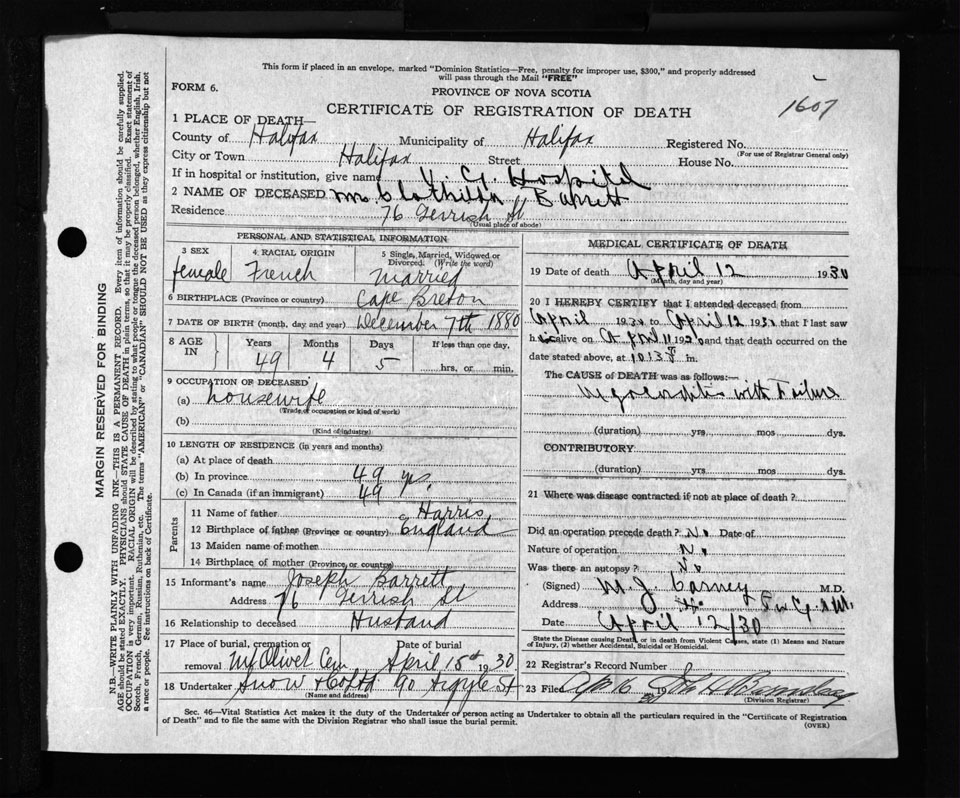 This form if placed in an envelope, marked "Dominion Statistics—Free, penalty for improper use, $300," and properly addressed
will pass through the Mail "FREE"
FORM 6.
PROVINCE OF NOVA SCOTIA
CERTIFICATE OF REGISTRATION OF DEATH
1607
1 PLACE OF DEATH—
County of Halifax Municipality of Halifax Registered No.
(For use of Registrar General only)
City or Town Halifax Street House No.
If in hospital or institution, give name V. G. Hospital
2 NAME OF DECEASED Barrett
Residence 76 Gerrish St
(Usual place of abode)
PERSONAL AND STATISTICAL INFORMATION
3 SEX 4 RACIAL ORIGIN 5 Single, Married, Widowed or Divorced. (Write the word)
female French Married
6 BIRTHPLACE (Province or country) Cape Breton
7 DATE OF BIRTH (month, day and year) December 7th 1880
8 AGE IN Years Months Days If less than one day,
49 4 5 hrs, or min.
9 OCCUPATION OF DECEASED
(a) housewife
(Trade of occupation or kind of work)
(b)
(Kind of industry)
10 LENGTH OF RESIDENCE (in years and months)
(a) At place of death
(b) In province 49 yrs.
(c) In Canada (if an immigrant) 49
Parents
11 Name of father Harris
12 Birthplace of father (Province or country) England
13 Maiden name of mother
14 Birthplace of mother (Province or country)
15 Informant's name Joseph Barrett
Address 76 Gerrish St
16 Relationship to deceased Husband
17 Place of burial, cremation or removal Mt Olivet Cem Date of burial April 15th 1930
18 Undertaker Snow & Co Ltd 90 Argyle St
(Name and address)
MEDICAL CERTIFICATE OF DEATH
19 Date of death April 12 1930
(Month, day and year)
20 I HEREBY CERTIFY that I attended deceased from
April 1930 to April 12 1930 that I last saw
h alive on April 11 1930 and that death occurred on the
date stated above, at m.
The CAUSE of DEATH was as follows:—
Myocarditis with Failure
(duration) yrs mos dys.
CONTRIBUTORY
(duration) yrs mos dys.
21 Where was disease contracted if not at place of death?
Did an operation precede death? No Date of
Nature of operation No
Was there an autopsy? No
(Signed) M. J. Carney M.D.
Address
Date April 12/30
State the Disease causing Death, or in death from Violent Causes, state (1) Means and Nature
of Injury, (2) whether Accidental, Suicidal or Homicidal.
22 Registrar's Record Number
23 Filed Apr 16 30
(Division Registrar)
Sec. 46—Vital Statistics Act makes it the duty of the Undertaker or person acting as Undertaker to obtain all the particulars required in the "Certificate of Registration
of Death" and to file the same with the Division Registrar who shall issue the burial permit.
(OVER)
MARGIN RESERVED FOR BINDING
N.B.—WRITE PLAINLY WITH UNFADING INK—THIS IS A PERMANENT RECORD. Every item of information should be carefully supplied.
AGE should be stated EXACTLY. PHYSICIANS should STATE CAUSE OF DEATH in plain terms, so that it may be properly classified. Exact statement of
OCCUPATION is very important. RACIAL ORIGIN will be described by stating to what people or tongue the deceased person belonged, whether English, Irish,
Scotch, French, German, Russian, Ruthenian, etc. The terms "AMERICAN" or "CANADIAN" SHOULD NOT BE USED as they express citizenship but not
a race or people. See instructions on back of Certificate.